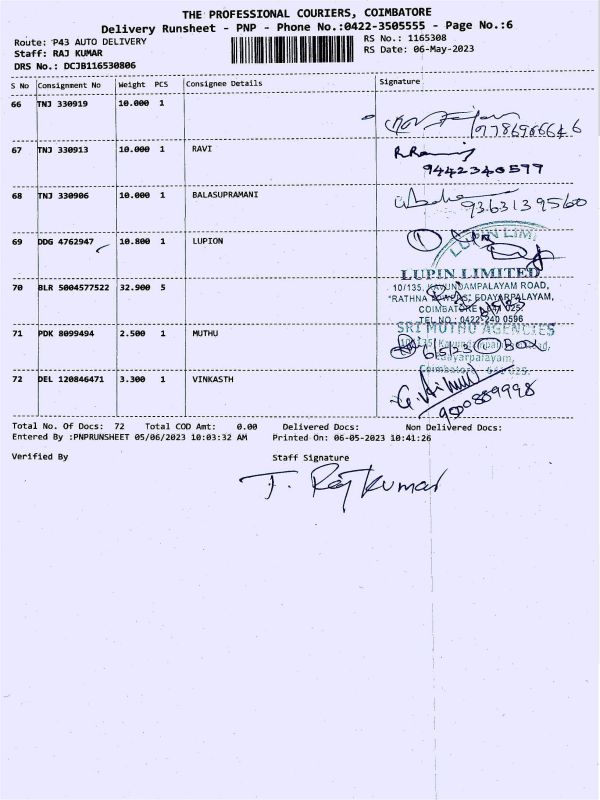 THE PROFESSIONAL COURIERS, COIMBATORE
Delivery Runsheet - PNP - Phone No.:0422-3505555 - Page No.:6
Route: P43 AUTO DELIVERY
RS No.: 1165308
Staff: RAJ KUMAR
RS Date: 06-May-2023
DRS No.: DCJB116530806
S No Consignment No Weight PCS Consignee Details Signature
66 TNJ 330919 10.000 1
9786966646
67 TNJ 330913 10.000 1 RAVI
9442340577
68 TNJ 330906 10.000 1 BALASUPRAMANI
9363139560
69 DDG 4762947 10.800 1 LUPION
LUPIN LIM
LUPIN LIMITED
70 BLR 5004577522 32.900 5
10/135, KAVUNDAMPALAYAM ROAD,
"RATHNA EDAYARPALAYAM,
COIMBATORE
TEL NO.: 0422-240 0596
SRI MUTHU AGENCIES
71 PDK 8099494 2.500 1 MUTHU
6/5/23 1 BOX
72 DEL 120846471 3.300 1 VINKASTH
9500889998
Total No. Of Docs: 72 Total COD Amt: 0.00 Delivered Docs: Non Delivered Docs:
Entered By :PNPRUNSHEET 05/06/2023 10:03:32 AM Printed On: 06-05-2023 10:41:26
Verified By Staff Signature
T. Raj Kumar